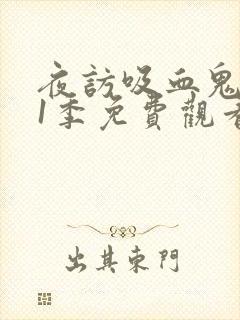 夜訪吸血鬼
1季免費觀看
出其東門